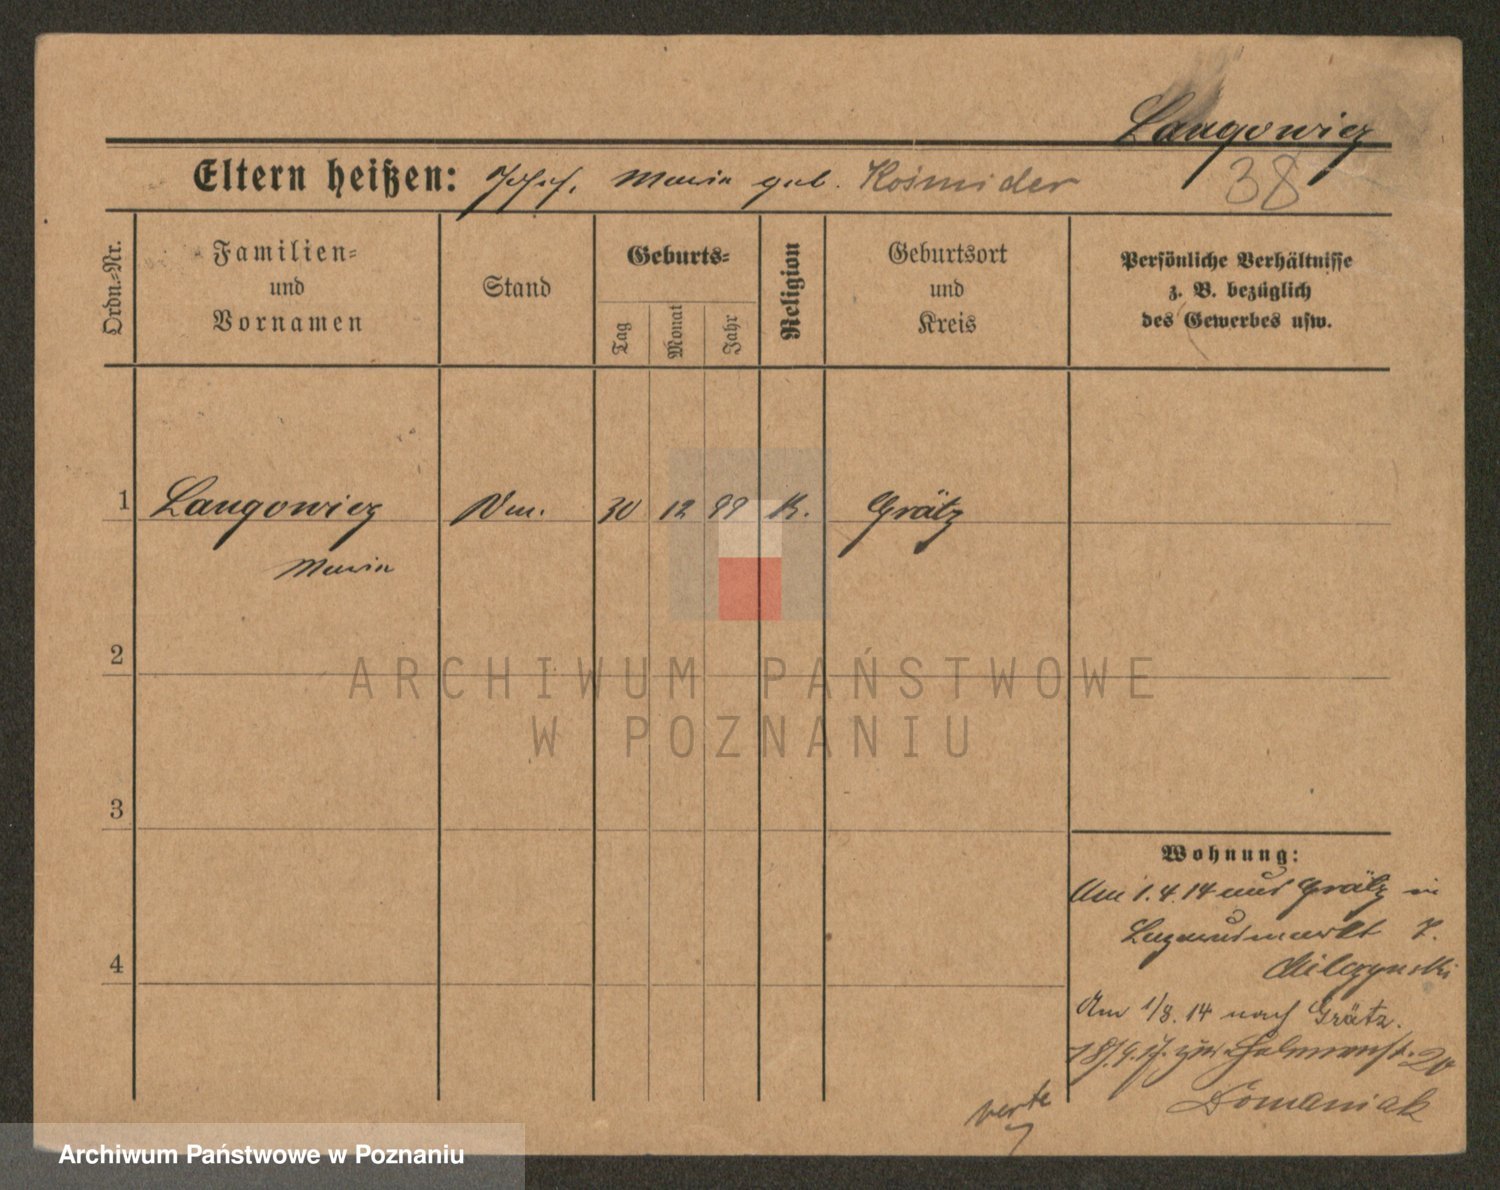 Langowicz
38
Eltern heißen: Josef, Maria geb. Kośmider
Ordn.-Nr.
Familien-
und
Vornamen
Stand
Geburts-
Tag
Monat
Jahr
Religion
Geburtsort
und
Kreis
Persönliche Verhältnisse
z. B. bezüglich
des Gewerbes usw.
1 Langowicz 30 12 99 K. Grätz
Maria
2
3
4
ARCHIWUM PAŃSTWOWE
W POZNANIU
Wohnung:
Am 1.4.14 aus Grätz in
7.
Milczynski
Am 1/8.14 nach Grätz.
20
Domaniak
verte
Archiwum Państwowe w Poznaniu